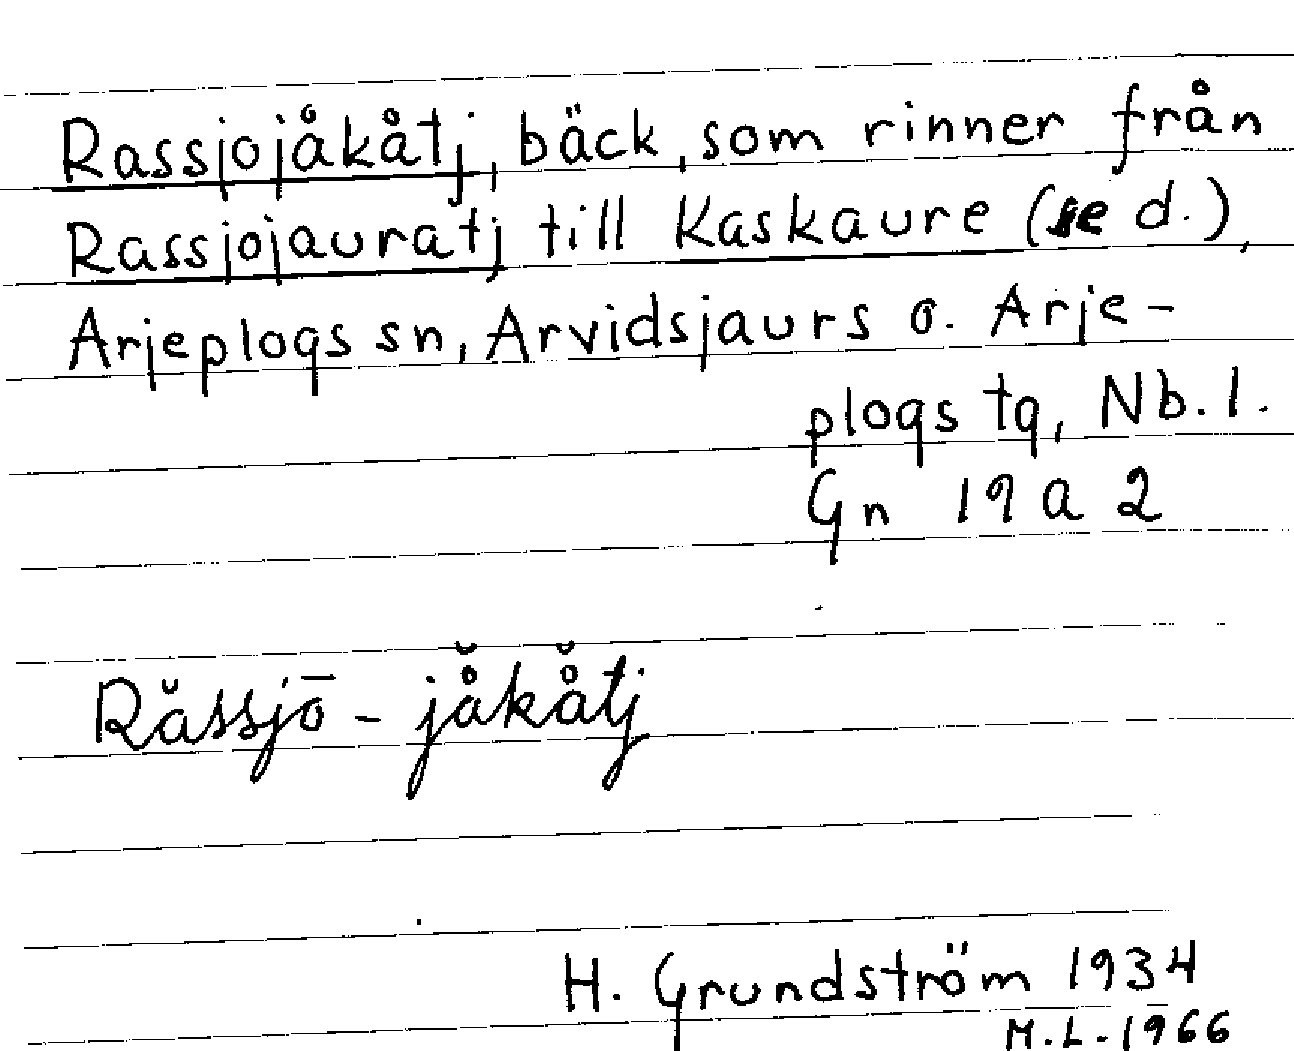 Rassjojåkåtj, bäck, som rinner från
Rassjojauratj till Kaskaure (se d.),
Arjeplogs sn, Arvidsjaurs o. Arje-
plogs tg, Nb. l.
Gn 19 a 2
Răssjō - jå̆kå̆tj
H. Grundström 1934
M.L. 1966